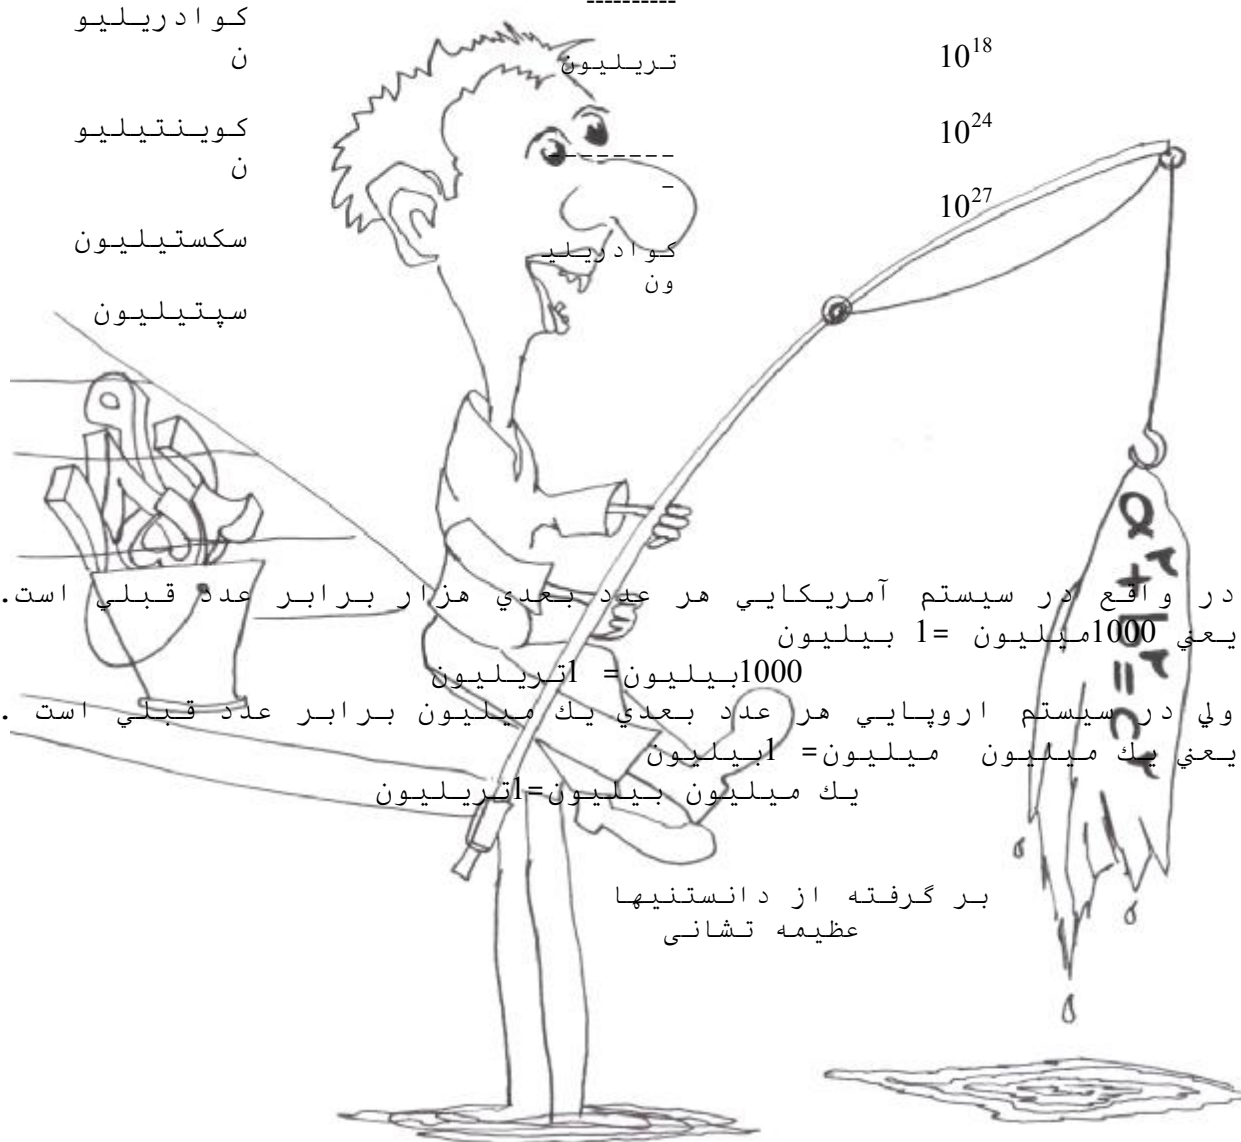 10^18
10^24
10^27
----------
تريليون
--------
-
كوادريلي
ون
كوادريليو
ن
كوينتيليو
ن
سكستيليون
سپتيليون
در واقع در سيستم آمريكايي هر عدد بعدي هزار برابر عدد قبلي است.
يعني 1000ميليون =1 بيليون
1000بيليون= 1تريليون
ولي در سيستم اروپايي هر عدد بعدي يك ميليون برابر عدد قبلي است .
يعني يك ميليون ميليون= 1بيليون
يك ميليون بيليون=1تريليون
بر گرفته از دانستنيها
عظيمه تشانى
a۲+b۲=c۲